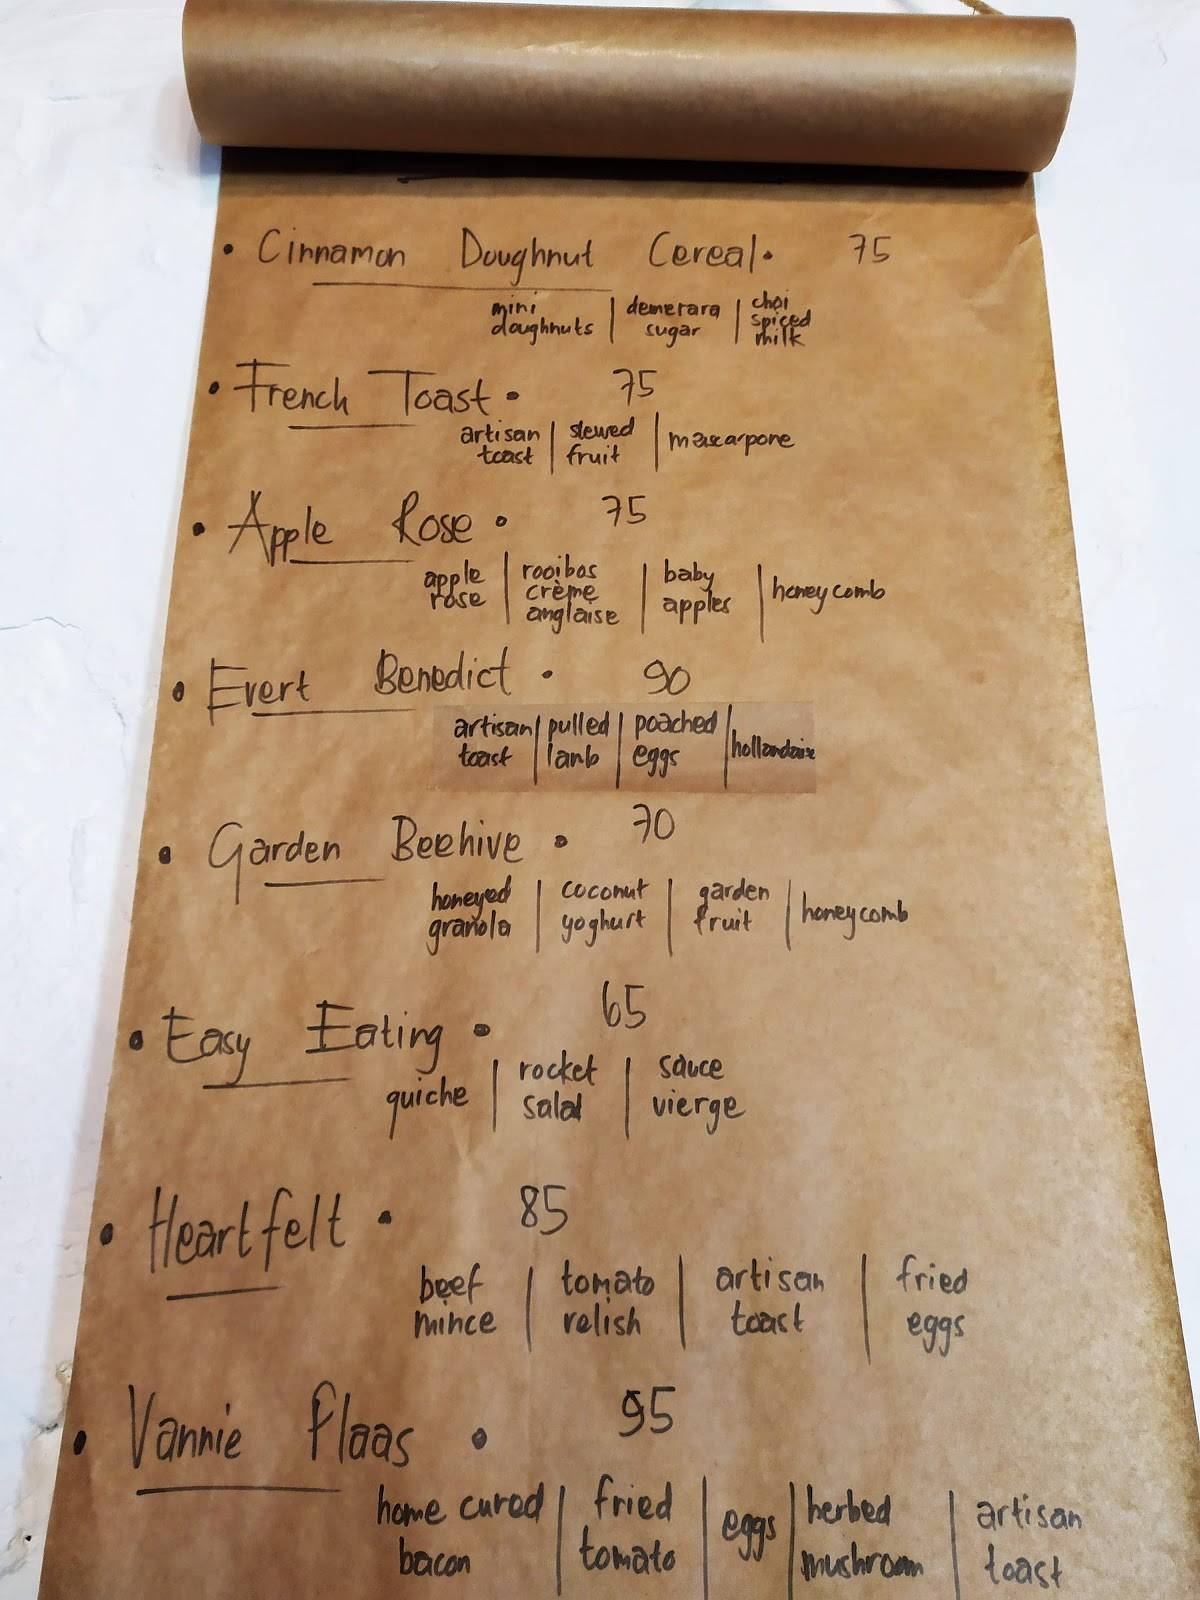 • Cinnamon Doughnut Cereal • 75
mini doughnuts | demerara sugar | chai spiced milk
• French Toast • 75
artisan toast | stewed fruit | mascarpone
• Apple Rose • 75
apple rose | rooibos crème anglaise | baby apples | honeycomb
• Evert Benedict • 90
artisan toast | pulled lamb | poached eggs | hollandaise
• Garden Beehive • 70
honeyed granola | coconut yoghurt | garden fruit | honeycomb
• Easy Eating • 65
quiche | rocket salad | sauce vierge
• Heartfelt • 85
beef mince | tomato relish | artisan toast | fried eggs
• Vannie Plaas • 95
home cured bacon | fried tomato | eggs | herbed mushroom | artisan toast